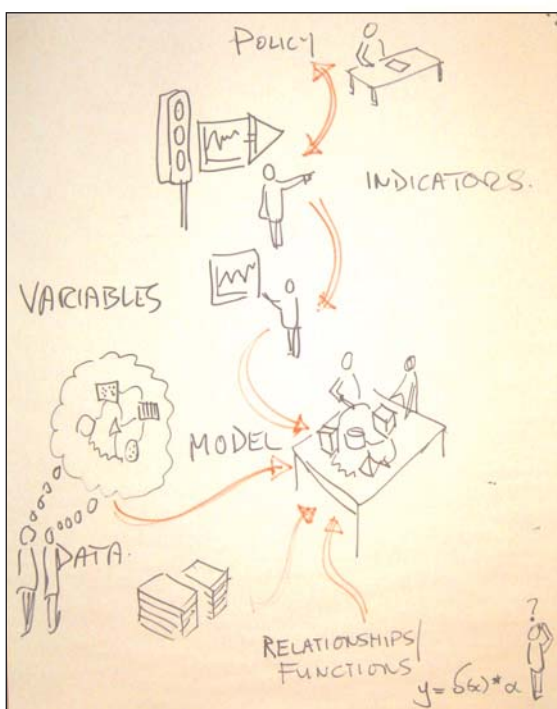 POLICY
INDICATORS.
VARIABLES
MODEL
DATA.
RELATIONSHIPS/
FUNCTIONS
?